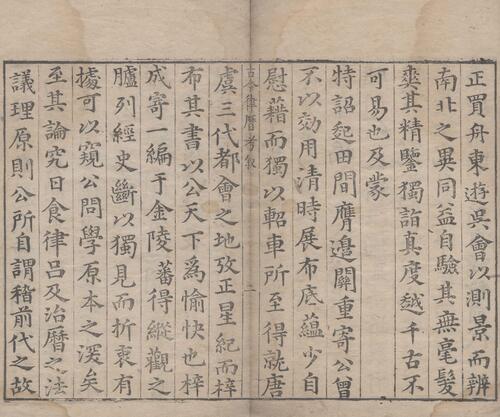 正買舟東遊吳會以測景而辨
南北之異同益自驗其無毫髮
爽其精鑒獨詣真度越千古不
可易也及蒙
特詔起田間膺邉關重寄公曾
不以効用清時展布底蘊少自
慰藉而獨以軺車所至得就唐
古今律曆考叙
二
虞三代都會之地攷正星紀而梓
布其書以公天下為愉快也梓
成寄一編于金陵蕃得縱觀之
臚列經史斷以獨見而折衷有
據可以窺公問學原本之深矣
至其論究日食律呂及治曆之法
議理原則公所自謂稽前代之故